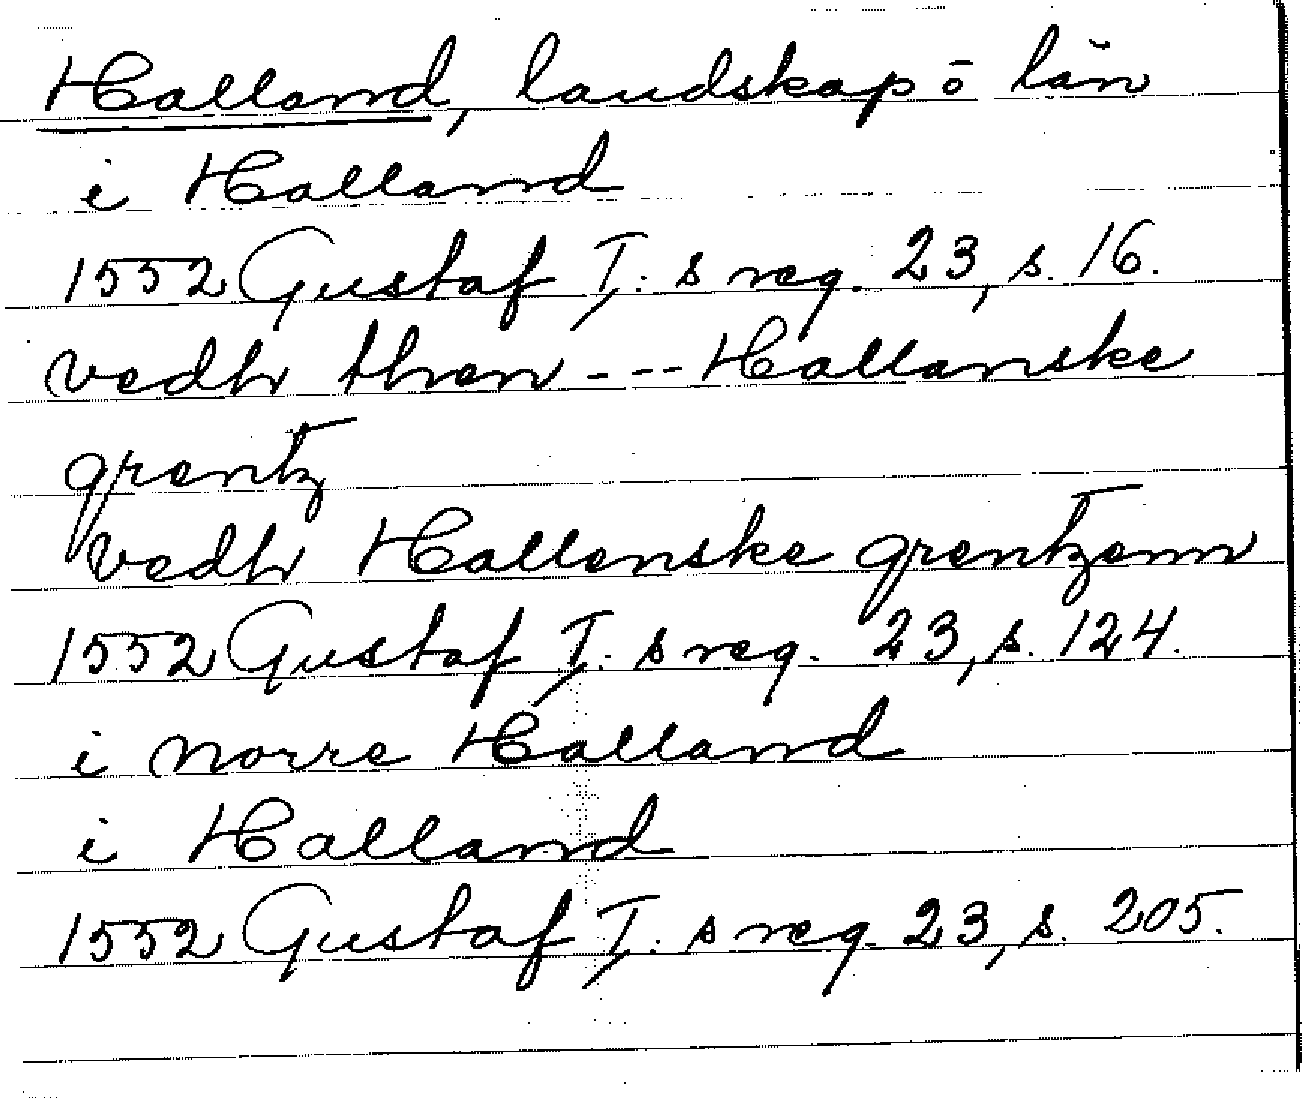 Halland, landskap o län
i Halland
1552 Gustaf I:s reg. 23, s. 16.
vedh then --- Hallanske
grentz
vedh Hallenske grentzenn
1552 Gustaf I:s reg. 23, s. 124.
i norre Halland
i Halland
1552 Gustaf I:s reg. 23, s. 205.